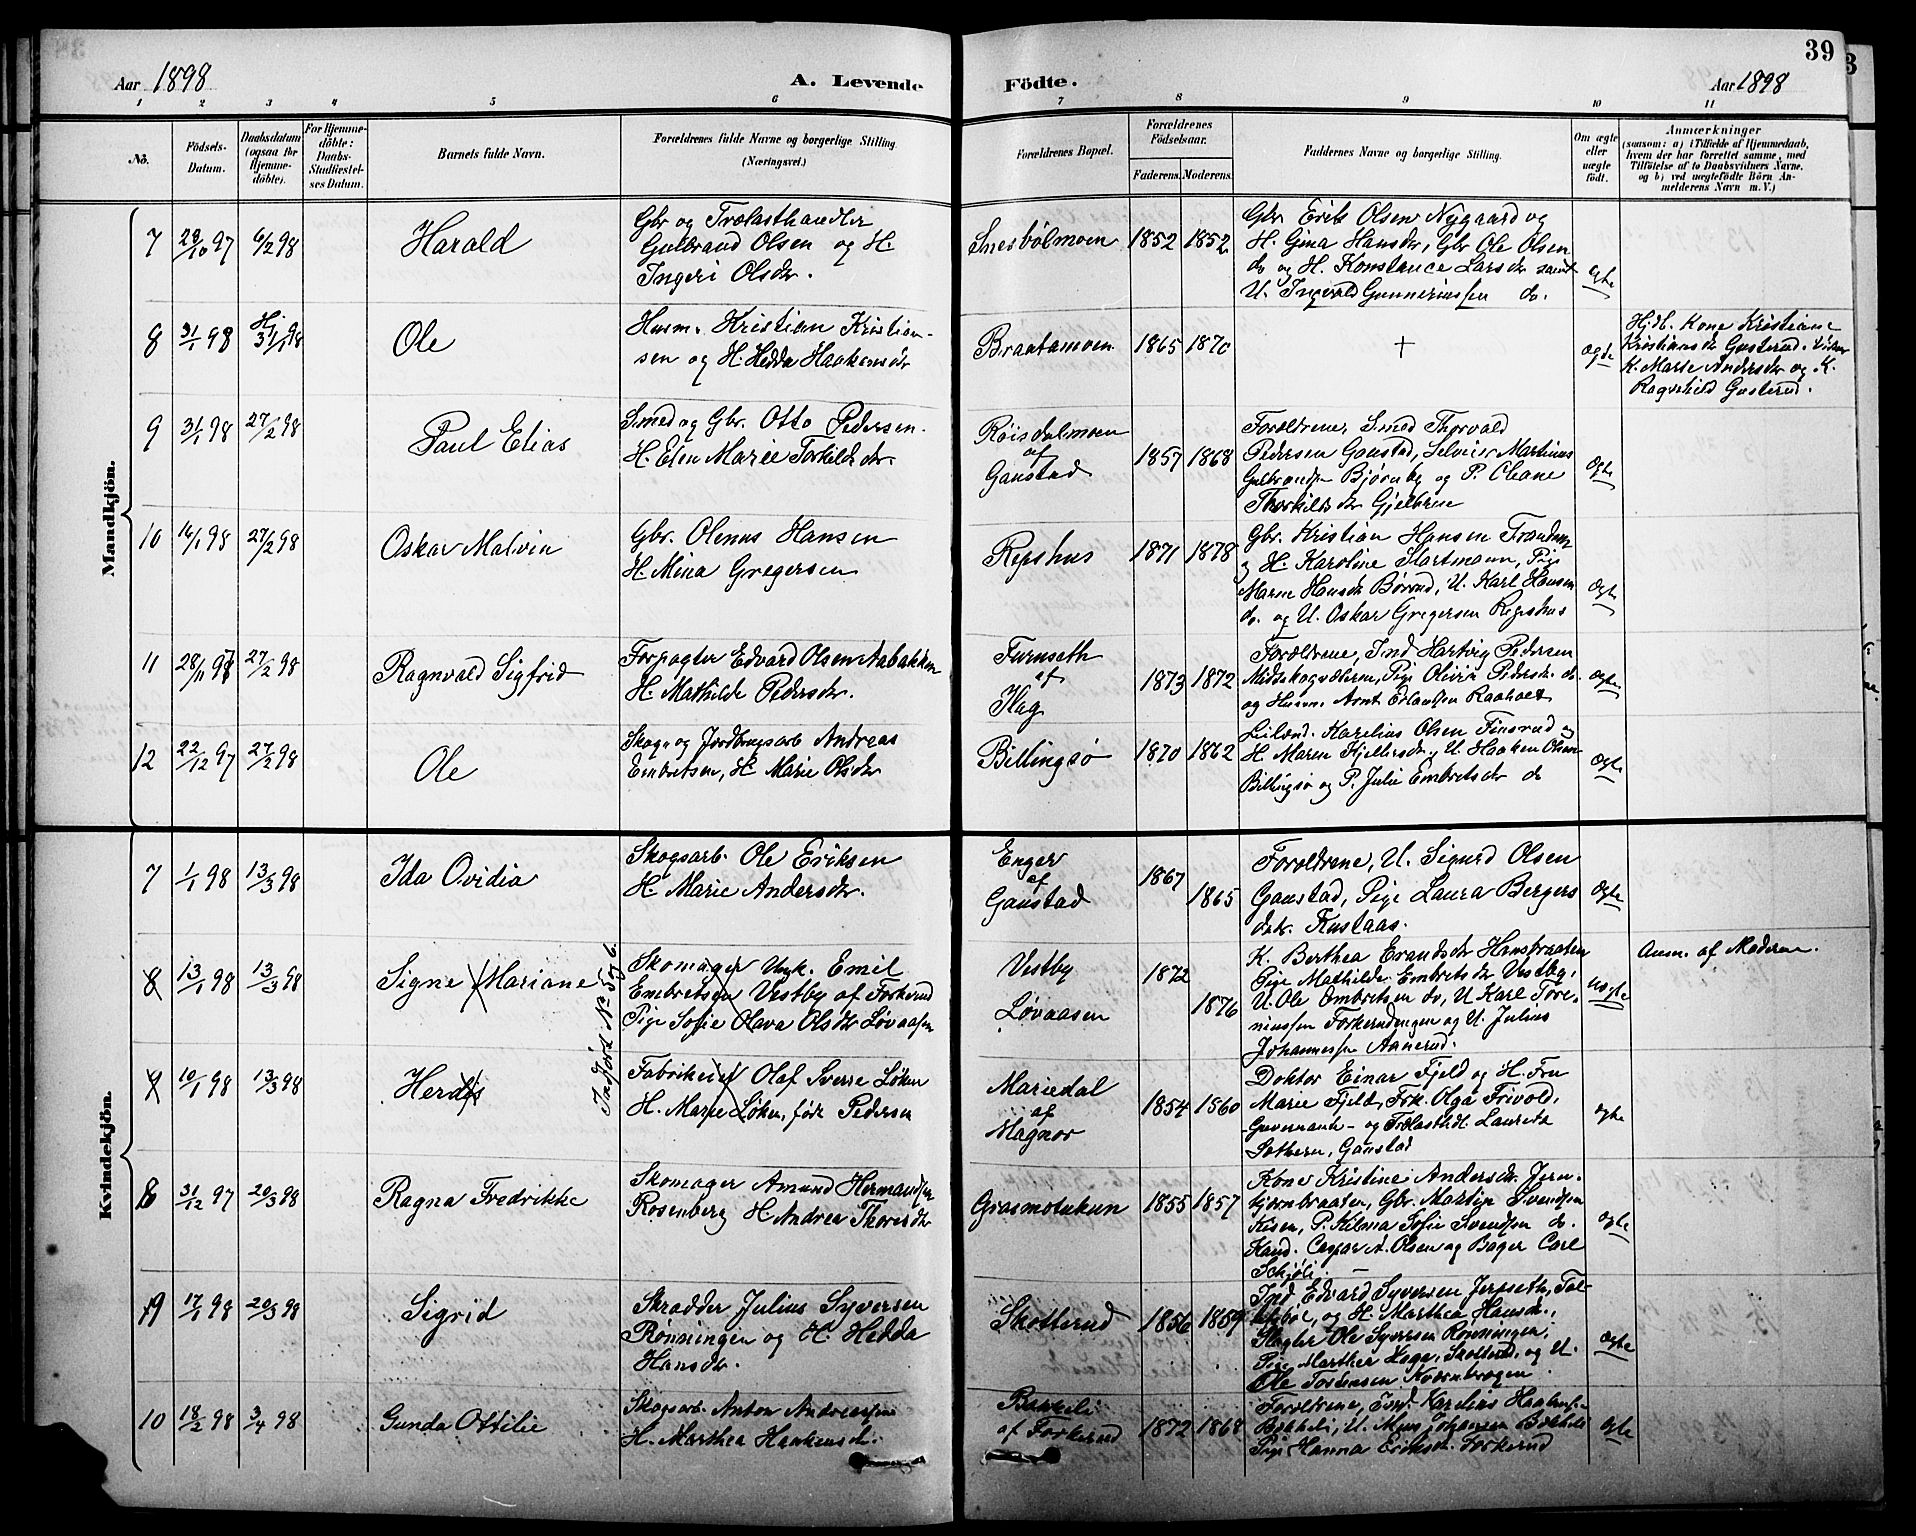 39
Aar 1898
A. Levende
Födte.
Aar 1898
1 2 3 4 5 6 7 8 9 10 11
No.
Födsels-
Datum.
Daabsdatum
(ogsaa for
Hjemme-
döbte).
For Hjemme-
döbte:
Daabs-
Stadfæstel-
ses Datum.
Barnets fulde Navn.
Forældrenes fulde Navne og borgerlige Stilling.
(Næringsvei.)
Forældrenes Bopæl.
Forældrenes
Födselsaar.
Faderens. Moderens.
Faddernes Navne og borgerlige Stilling.
Om ægte
eller
uægte
födt.
Anmærkninger
(saasom: a) i Tilfælde af Hjemmedaab,
hvem der har forrettet samme, med
Tilföielse af to Daabsvidners Navne,
og b) ved uægtefödte Börn An-
melderens Navn m. V.)
Mandkjön.
7 28/10 97 6/2 98
Harald
Gbr og Trælasthandler
Gulbrand Olsen og H.
Ingeri Olsdr.
Snesbølmoen
1852 1852
Gbr Erik Olsen Nygaard og
H. Gina Hansdr, Gbr Ole Olsen
do og H. Konstance Larsdr samt
U. Ingvald Gunneriussen do.
ægte
8 31/1 98 Hj. 31/1 98
Ole
Husm. Kristian Kristian-
sen og H. Hedda Haakensdr
Braatamoen
1865 1870
+
ægte
Hjdb. Kone Kristiane
Kristiansdr Gusterud.
K. Marie Andersdr og K.
Ragnhild Gusterud.
9 31/1 98 27/2 98
Paul Elias
Smed og Gbr. Otto Pedersen
H. Elen Marie Torkildsdr.
Röisdalmoen
af
Gaustad
1857 1868
Forældrene, Smed Thorvald
Pedersen Gaustad, Selveier Martinus
Gulbrandsen Bjørnby og P. Oleane
Thorkildsdr
ægte
10 16/1 98 27/2 98
Oskar Malvin
Gbr. Olenus Hansen
H. Mina Gregersen
Repshus
1871 1878
Gbr. Kristian Hansen
og H. Karoline Hartmann, Pige
Maren Hansdr Børud, U. Karl Hansen
do. og U. Oskar Gregersen Repshus
ægte
11 28/11 97 27/2 98
Ragnvald Sigfrid
Forpagter Edvard Olsen Aabakken
H. Mathilde Pedersdr.
Furuseth
af
Hag
1873 1872
Forældrene, Ind Hartvig Pedersen
Midtskogsæteren, Pige Olivia Pedersdr. do.
og Husm. Arnt Erlandsen Raaholt
ægte
12 22/12 97 27/2 98
Ole
Skogs og Jordbrugsarb Andreas
Embretsen, H. Marie Olsdr
Billingsø
1870 1862
Karelius Olsen Finsrud og
H. Maren U. Haaken Olsen
Billingsø og P. Julie Embretsdr do
ægte
Kvindekjön.
7 1/1 98 13/3 98
Ida Ovidia
Skogsarb. Ole Eriksen
H. Marie Andersdr.
Enger
af
Gaustad
1867 1865
Forældrene, U. Sigurd Olsen
Gaustad, Pige Laura Bergers
datr. Kustaas.
ægte
8 13/1 98 13/3 98
Signe Mariane
Indført No 5 og 6.
Skomager Ungk. Emil
Embretsen Vestby af Forkerud
Pige Sofie Olava Olsdr Løvaasen
Vestby
Løvaasen
1872 1876
K. Berthea Hansbraaten
Pige Mathilde Embretsdr Vestby,
U. Ole Embretsen do, U Karl Tore-
niussen Forkerudengen og U. Julius
Johannessen Aanerud.
uægte
Anm. af Moderen.
9 10/1 98 13/3 98
Herdis
Fabrikeier Olaf Sverre Løken
H. Marie Løken, født Pedersen
Mariedal
af
Magnor
1854 1560
Doktor Einar Fjeld og H. Fru
Marie Fjeld, Frk. Olga Frivold,
Guvernante og Trælasthdl. Lauritz
Sothern, Gaustad
ægte
8 31/12 97 20/3 98
Ragna Fredrikke
Skomager Amund Hermansen
Rosenberg H. Andrea Thoresdr
Grasmotukun
1855 1857
Kone Kristine Andersdr. Jern-
bjørnbraaten, Gbr. Martin Svendsen
Kisen, P. Hilma Sofie Svendsen do.
Hand. Caspar A. Olsen og Bager Carl
Schjøli.
ægte
9 17/1 98 20/3 98
Sigrid
Skrædder Julius Syversen
Rønningen og H. Hedda
Hansdr.
Skotterud
1856 1859
Ind Edvard Syversen Jerpseth,
og H. Marthea Hansdr.,
Slagter Ole Syversen Rønningen,
Pige Marthea Haga, Skotterud, og U.
Ole Torstensen
ægte
10 18/2 98 3/4 98
Gunda Ottilie
Skogsarb. Anton Andreassen
H. Marthea Haakensdr.
Bakkeli
af Forkerud
1872 1868
Forældrene, Ford. Karelius Haakens.
Bakkeli, U. Johansen Bakkeli
Pige Hanna Eriksdr. Forkerud
ægte